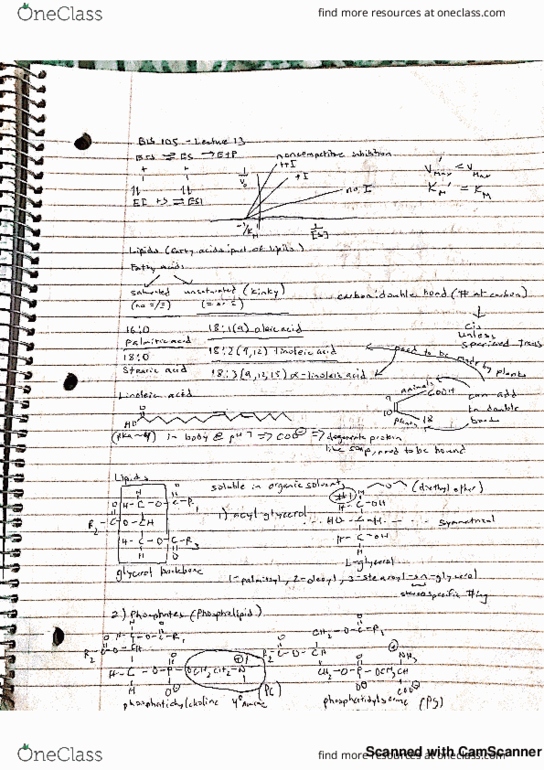 OneClass
find more resources at oneclass.com
BIS 105 - Lecture 13
E+S ⇌ ES → E+P
noncompetitive inhibition
+ +
I I
++I
+I
no I
1/V₀
V'max < Vmax
K'M = KM
⇅ ⇅
EI + S ⇌ ESI
-1/KM
1/[S]
Lipids (fatty acids part of lipids)
Fatty acids
saturated unsaturated (kinky)
(no =/≡) (= or ≡)
carbon:double bond (# at carbon)
cis unless specified trans
16:0 18:1(9) oleic acid
Palmitic acid
18:0 18:2(9,12) linoleic acid
need to be made by plants
Stearic acid 18:3(9,12,15) α-linolenic acid
Linoleic acid
animals
COOH
can add
9
10
plants 18
double bonds
HO
O
(pKa ~4) in body @ pH 7 => COO⊖ => degenerate protein
like soap, need to be bound
Lipids
soluble in organic solvent
(diethyl ether)
1) acyl glycerol
symmetrical
glycerol backbone
L-glycerol
1-palmitoyl, 2-oleoyl, 3-stearoyl-sn-glycerol
stereospecific #ing
2) Phosphates (Phospholipid)
phosphatidylcholine 4° Amine (PC)
phosphatidylserine (PS)
OneClass
find more resources at oneclass.com
Scanned with CamScanner